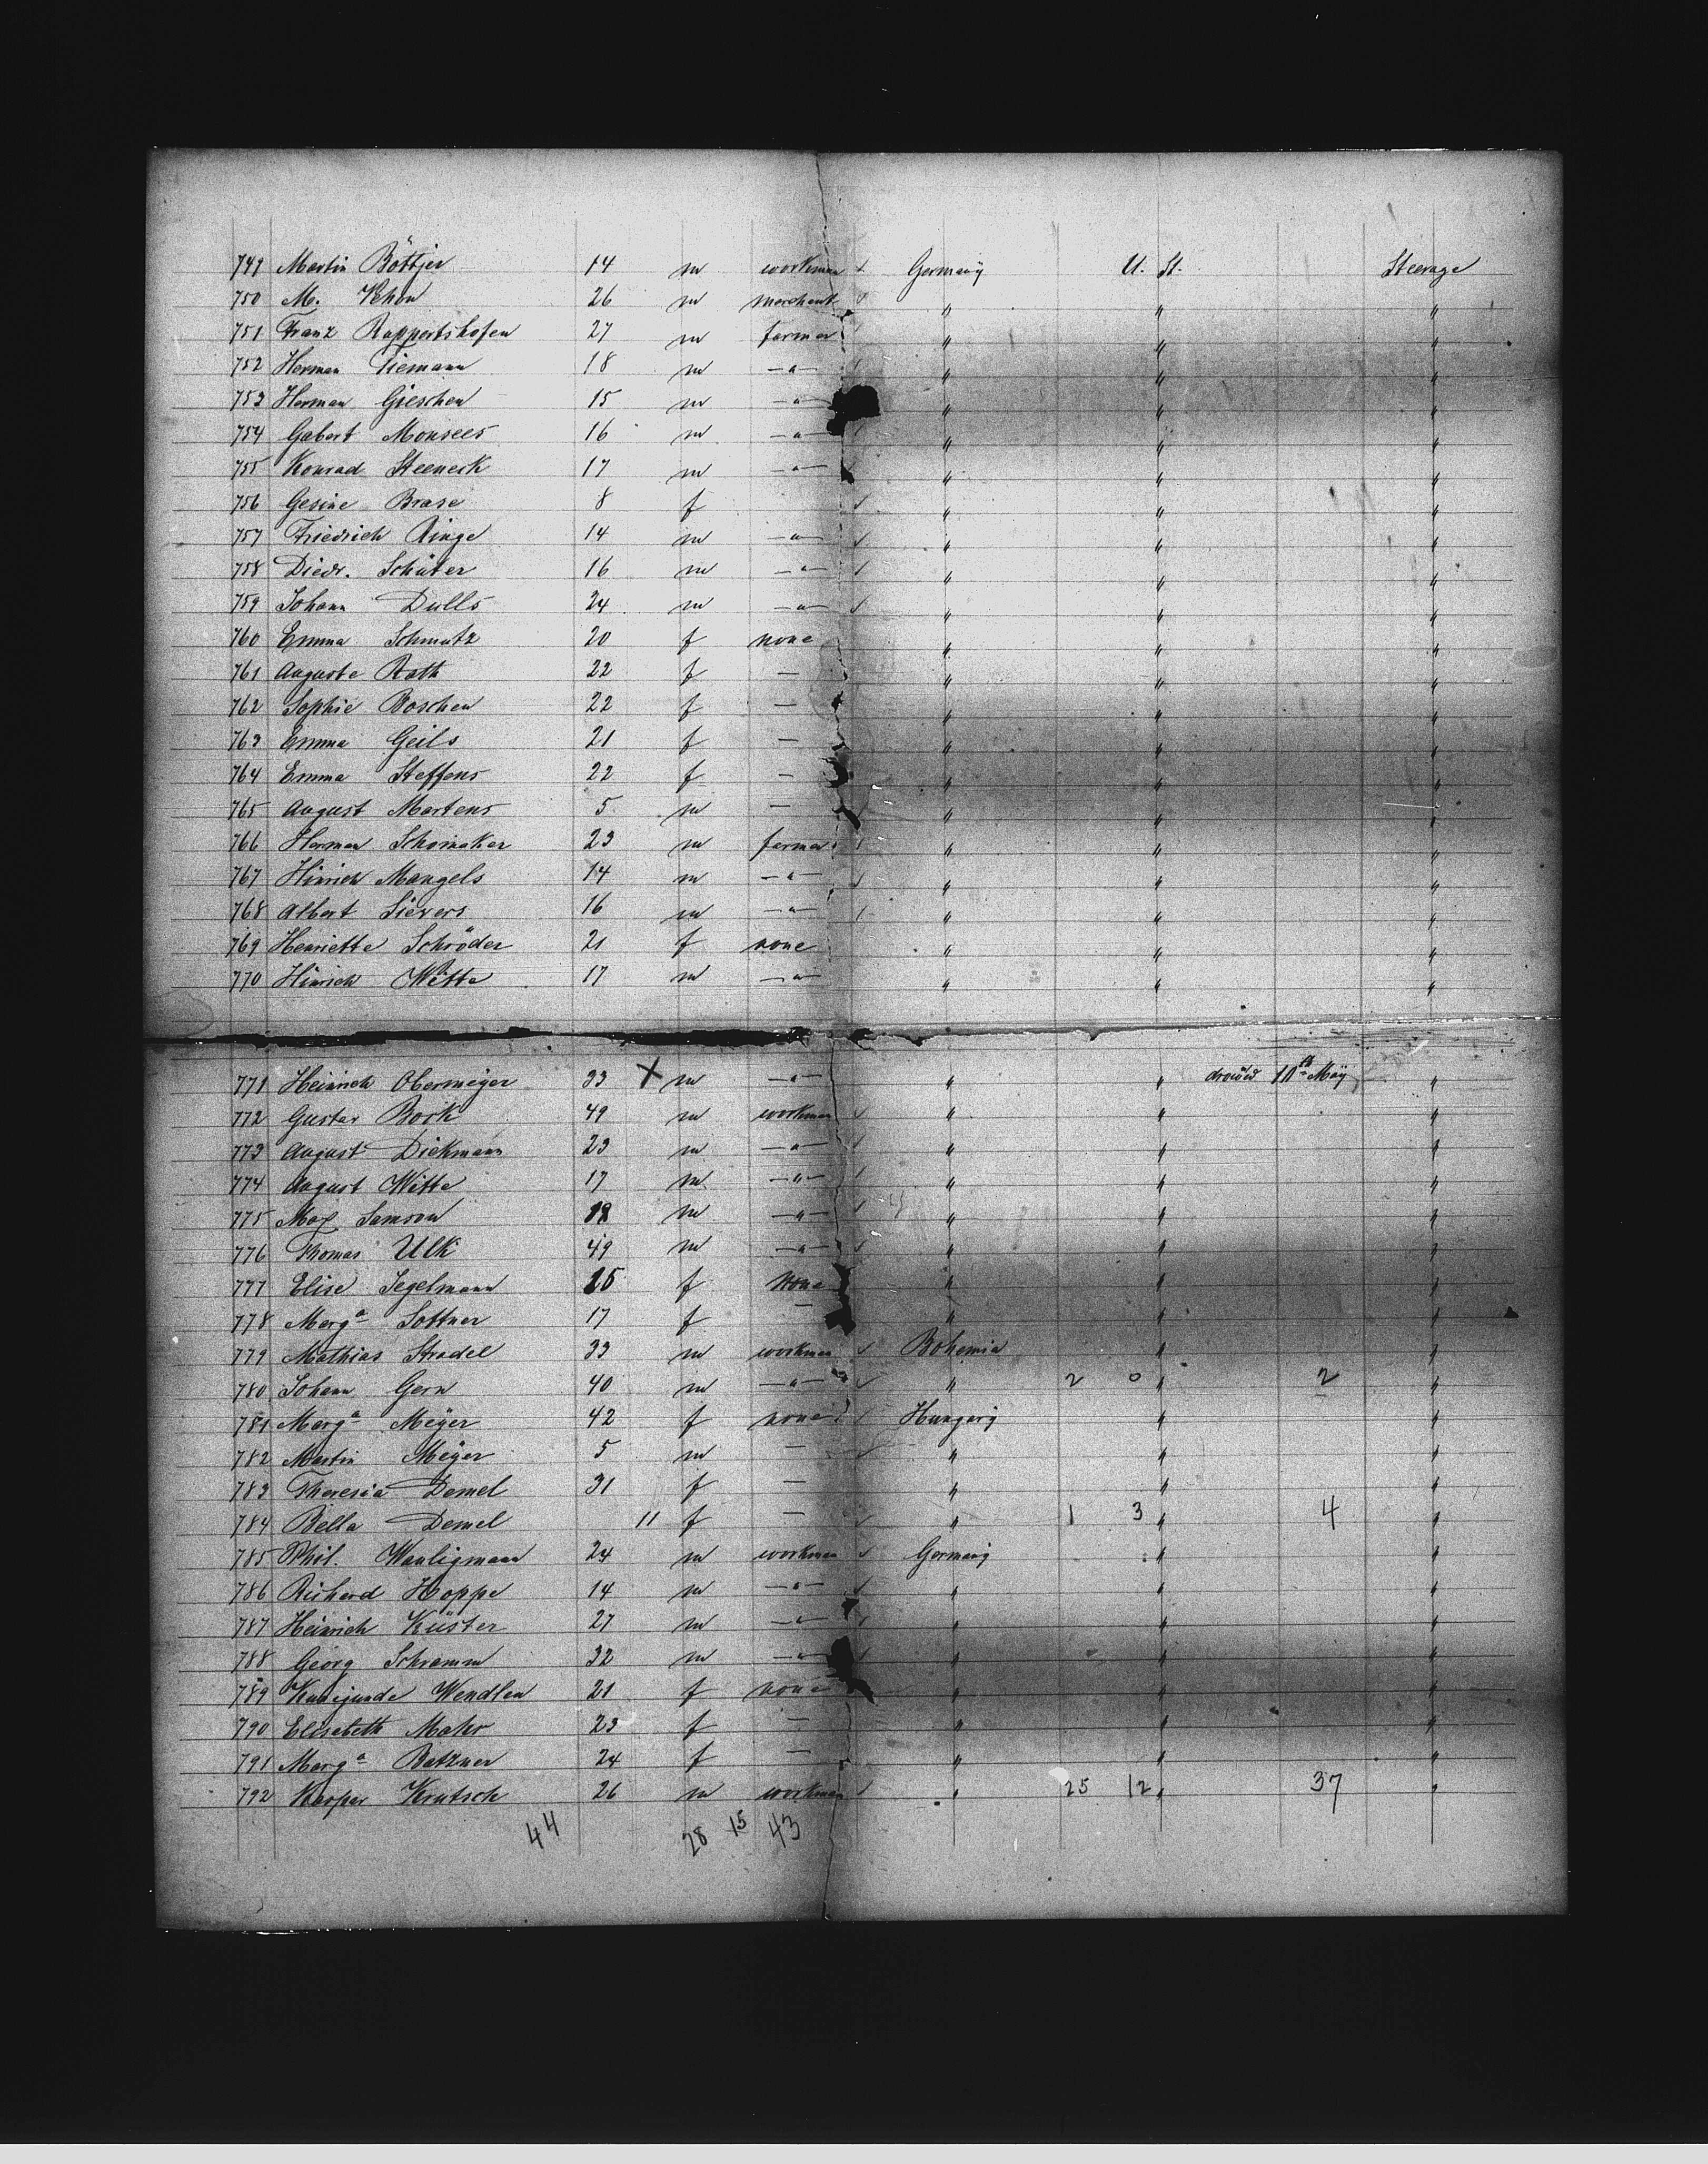 749 Martin Böttjer 14 m workman Germany U. St. Steerage
750 M. 26 m merchant " " "
751 Franz Rappertshofen 27 m farmer " " "
752 Herman Tiemann 18 m —"— " " "
753 Herman Gieschen 15 m —"— " " "
754 Gebert Monsees 16 m —"— " " "
755 Konrad Steeneck 17 m —"— " " "
756 Gesine Brase 8 f " " "
757 Friedrich Ringe 14 m —"— " " "
758 Diedr. Schüter 16 m —"— " " "
759 Johann Dulls 24 m —"— " " "
760 Emma Schmutz 20 f none " " "
761 Auguste Rath 22 f — " " "
762 Sophie Boschen 22 f — " " "
763 Emma Geils 21 f — " " "
764 Emma Steffens 22 f — " " "
765 August Martens 5 m — " " "
766 Herman Schomaker 23 m farmer " " "
767 Hinrich Mangels 14 m —"— " " "
768 Albert Sievers 16 m —"— " " "
769 Henriette Schröder 21 f none " " "
770 Hinrich Witte 17 m —"— " " "
771 Heinrich Obermeyer 33 X m —"— " " 10th May "
772 Gustav Bock 49 m workman " " "
773 August Diekmann 23 m —"— " " "
774 August Witte 17 m —"— " " "
775 Max Samson 18 m —"— " " "
776 Thomas Ulk 49 m —"— " " "
777 Elise Segelmann 25 f none " " "
778 Marga Sottner 17 f — " " "
779 Mathias Stradel 33 m workman Bohemia " "
780 Johann Gern 40 m —"— " 2 0 " 2 "
781 Marga Meÿer 42 f none Hungary " "
782 Martin Meÿer 5 m — " " "
783 Theresia Demel 31 f — " " "
784 Bella Demel 11 f — " 1 3 " 4 "
785 Phil. Wanligmann 24 m workman Germany " "
786 Richard Hoppe 14 m —"— " " "
787 Heinrich Küster 27 m —"— " " "
788 Georg Schramm 32 m —"— " " "
789 Kunigunde Wendlen 21 f none " " "
790 Elisabeth Mahr 23 f — " " "
791 Marga Batzner 24 f — " " "
792 Kaspar Krutsch 26 m workman " 25 12 " 37 "
44 28 15 43